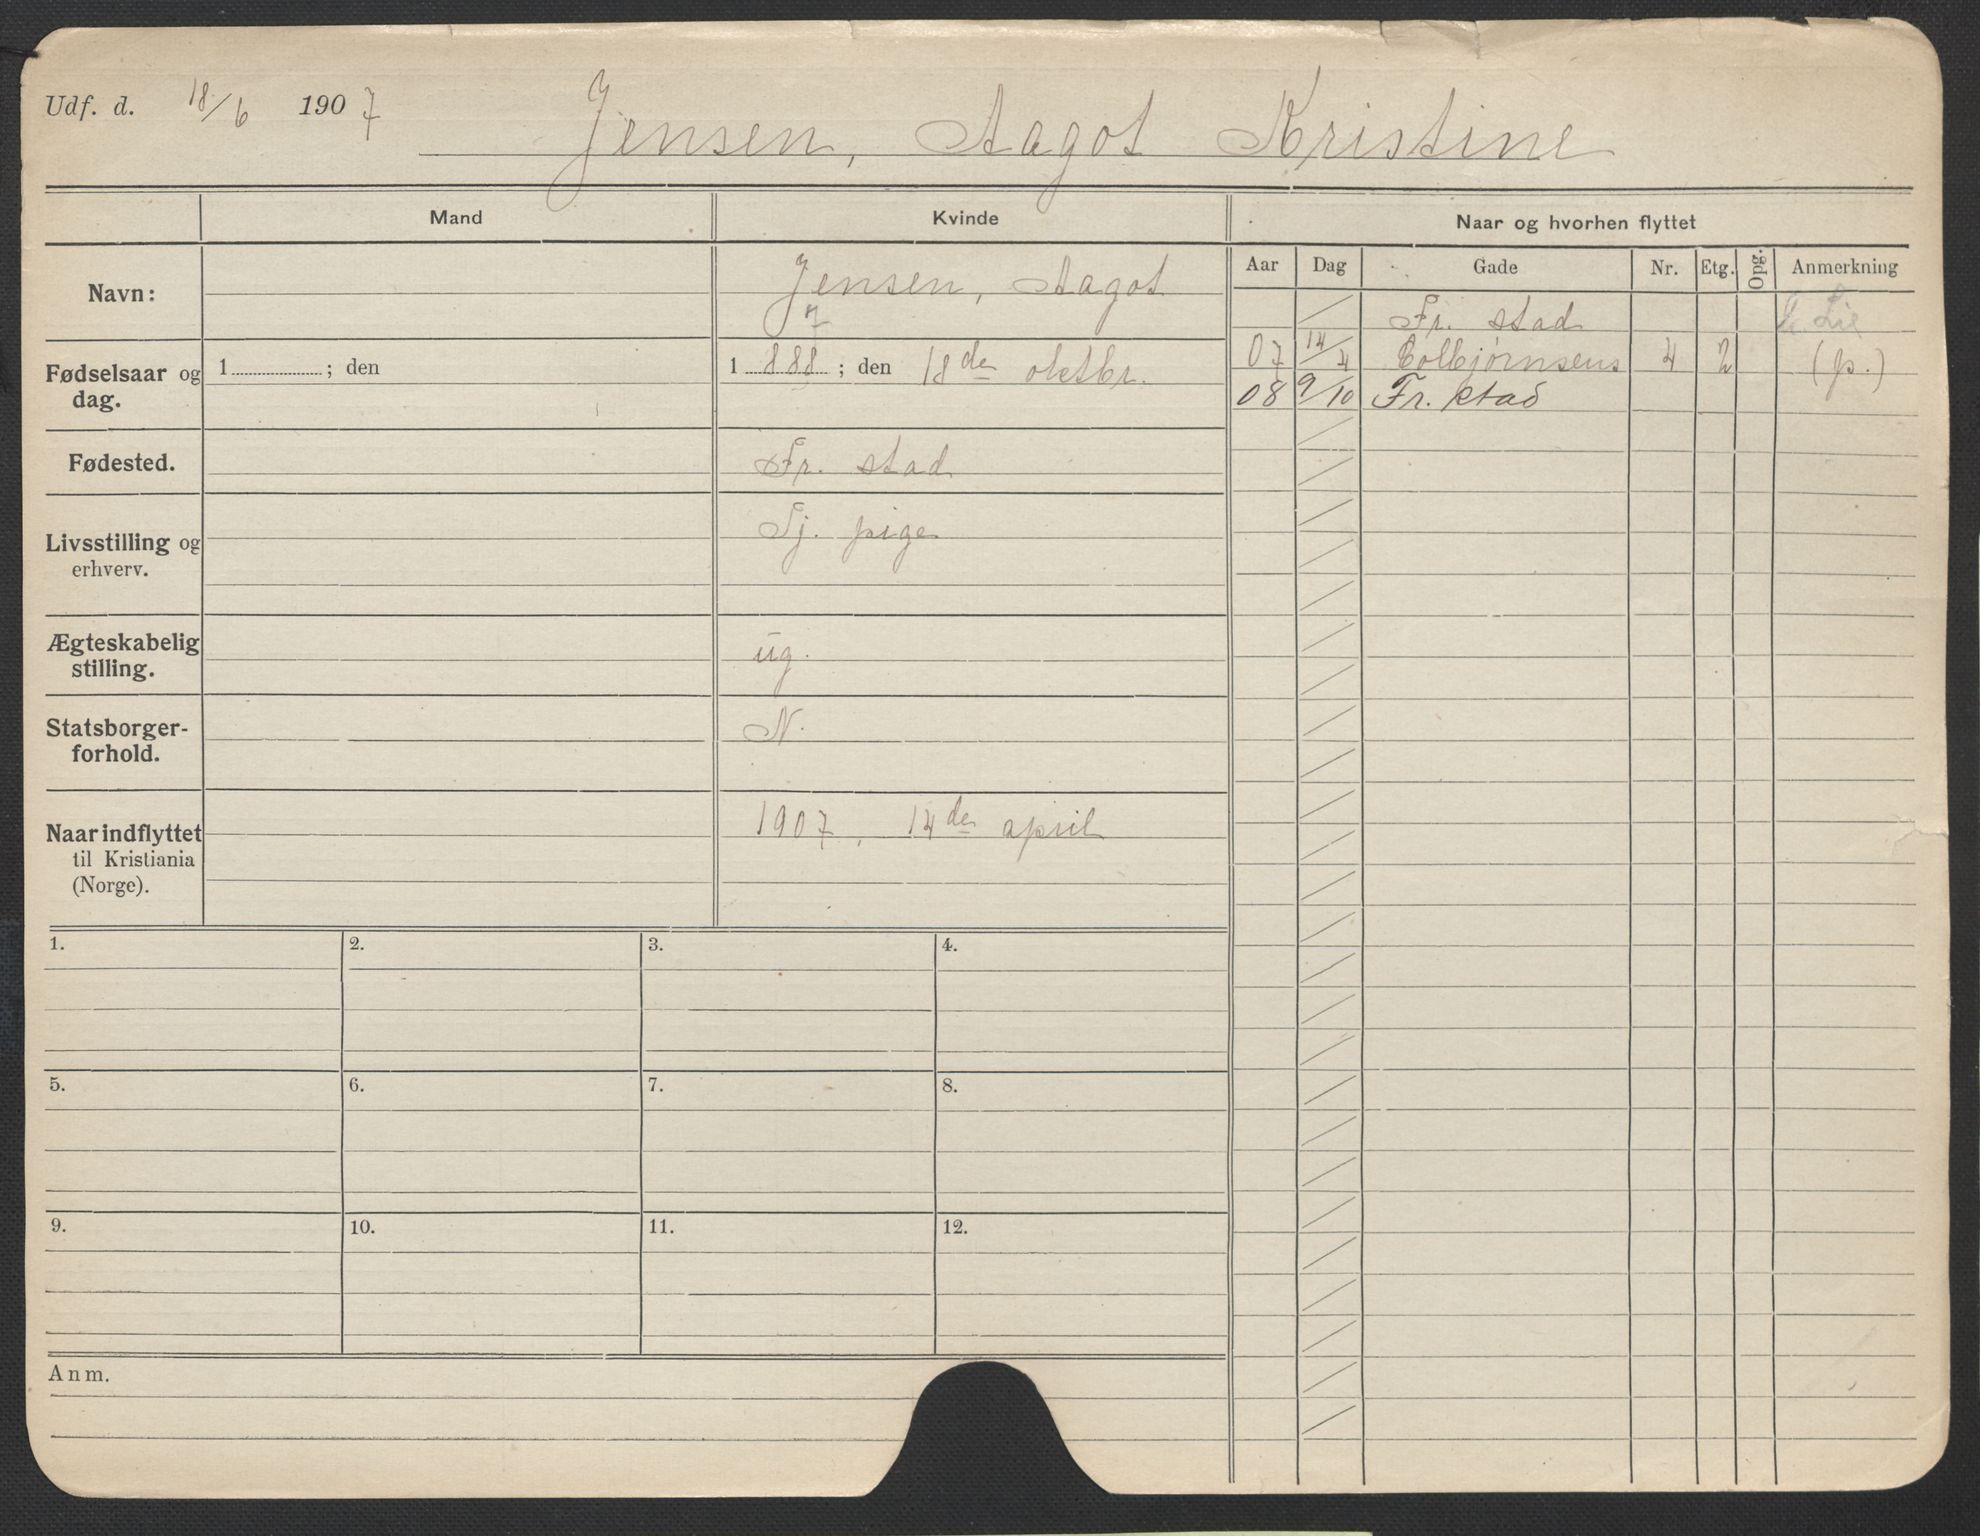 Udf. d. 18/6 1907
Jensen, Aagot Kristine
Mand Kvinde Naar og hvorhen flyttet
Aar Dag Gade Nr. Etg. Opg. Anmerkning
Navn: Jensen, Aagot
7
Fødselsaar og dag. 1 ; den 1 888 ; den 18de oktbr.
Fødested. Fr. stad
Livsstilling og erhverv. Tj. pige
Ægteskabelig stilling. ug.
Statsborgerforhold. N.
Naar indflyttet til Kristiania (Norge). 1907, 14de april
Fr. stad Lie
07 14/4 Colbjørnsens 4 2 (p.)
08 9/10 Fr. stad
1. 2. 3. 4.
5. 6. 7. 8.
9. 10. 11. 12.
Anm.